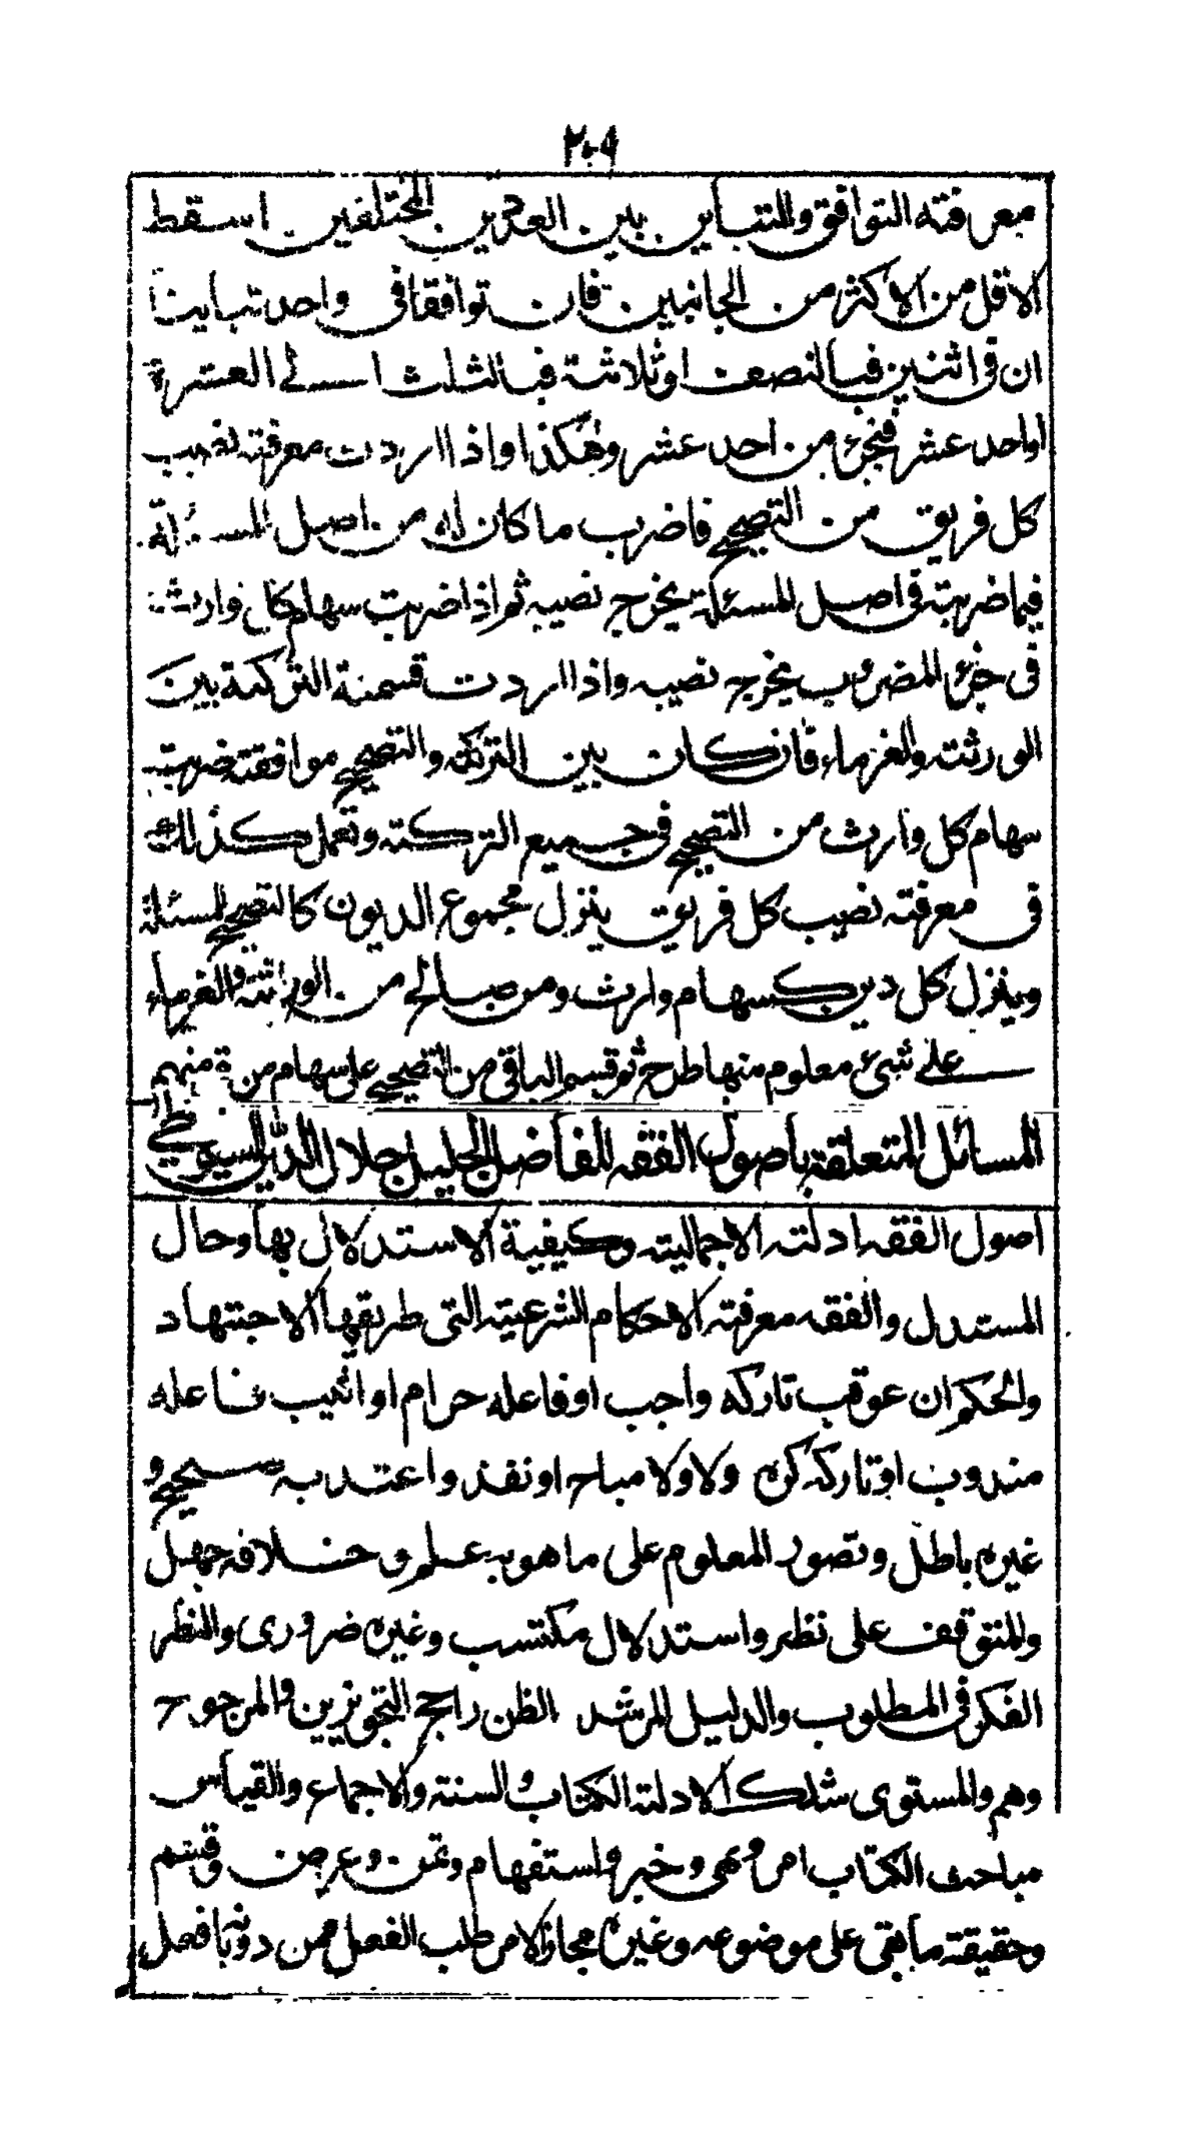 ٢٠٩
معرفته التوافق والتباين بين العددين المختلفين اسقط
الاقل من الاكثر من الجانبين فان توافقا في واحد تباينا
ان في اثنين فبالنصف او ثلاثة فبالثلث الى العشرة
او احد عشر فبجزء من احد عشر وهكذا واذا اردت معرفته نصيب
كل فريق من التصحيح فاضرب ما كان له من اصل المسئلة
فيما ضربته في اصل المسئلة يخرج نصيبه ثم اذا ضربت سهام كل وارث
في جزء المضروب يخرج نصيبه واذا اردت قسمة التركة بين
الورثته والغرماء فان كان بين التركة والتصحيح موافقته ضربت
سهام كل وارث من التصحيح في جميع التركته وتعمل كذلك
في معرفته نصيب كل فريق ينزل مجموع الديون كالتصحيح للمسئلة
وينزل كل دين كسهام وارث ومن صالح من الورثته والغرماء
على شيء معلوم منها طرح ثم قسم الباقي من التصحيح على سهام من منهم
المسائل المتعلقة باصول الفقه للفاضل الجليل جلال الدين السيوطي
اصول الفقه ادلته الاجماليته وكيفية الاستدلال بها وحال
المستدل والفقه معرفته الاحكام الشرعيته التي طريقها الاجتهاد
والحكم ان عوقب تاركه واجب او فاعله حرام او اثيب فاعله
مندوب او تاركه كره ولا ولا مباح او نفذ واعتد به صحيح و
غيره باطل وتصور المعلوم على ما هو به علم وخلافه جهل
والمتوقف على نظر واستدلال مكتسب وغيره ضروري والنظر
الفكر في المطلوب والدليل المرشد الظن راجح التجويزين والمرجوح
وهم والمستوى شك الادلته الكتاب والسنته والاجماع والقياس
مباحث الكتاب امر ونهى وخبر واستفهام وتمن وعرض وقسم
وحقيقته ما بقى على موضوعه وغيره مجاز الامر طلب الفعل ممن دونه بافعل